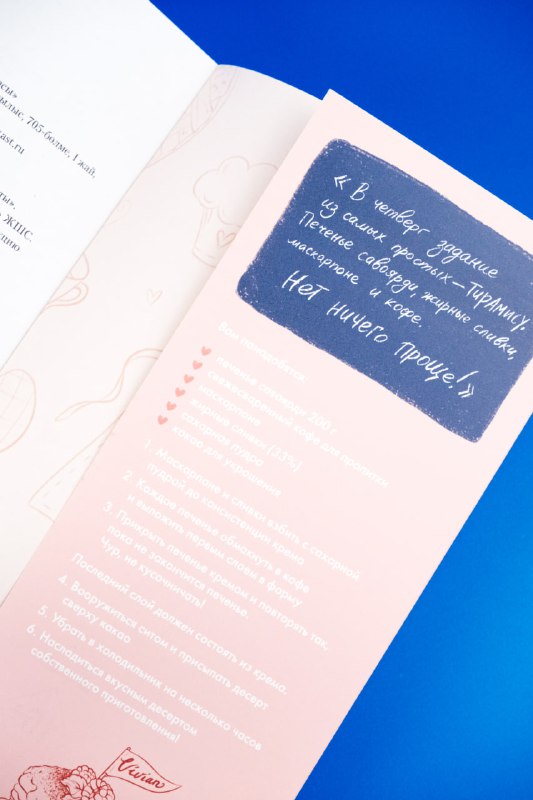 сы»
ылыс, 705-бөлме, I жай,
ast.ru
ты».
ЖШС.
кцию
« В четверг задание
из самых простых – ТИРАМИСУ.
Печенье савоярди, жирные сливки,
маскарпоне и кофе.
Нет ничего проще!»
Вам понадобится:
печенье савоярди 200г
свежесваренный кофе для пропитки
маскарпоне
жирные сливки (33%)
сахарная пудра
какао для украшения
1. Маскарпоне и сливки взбить с сахарной
пудрой до консистенции крема
2. Каждое печенье обмакнуть в кофе
и выложить первым слоем в форму
3. Прикрыть печенье кремом и повторять так,
пока не закончится печенье.
Чур, не кусочничать!
Последний слой должен состоять из крема.
4. Вооружиться ситом и присыпать десерт
сверху какао
5. Убрать в холодильник на несколько часов
6. Насладиться вкусным десертом
собственного приготовления!
Vivian